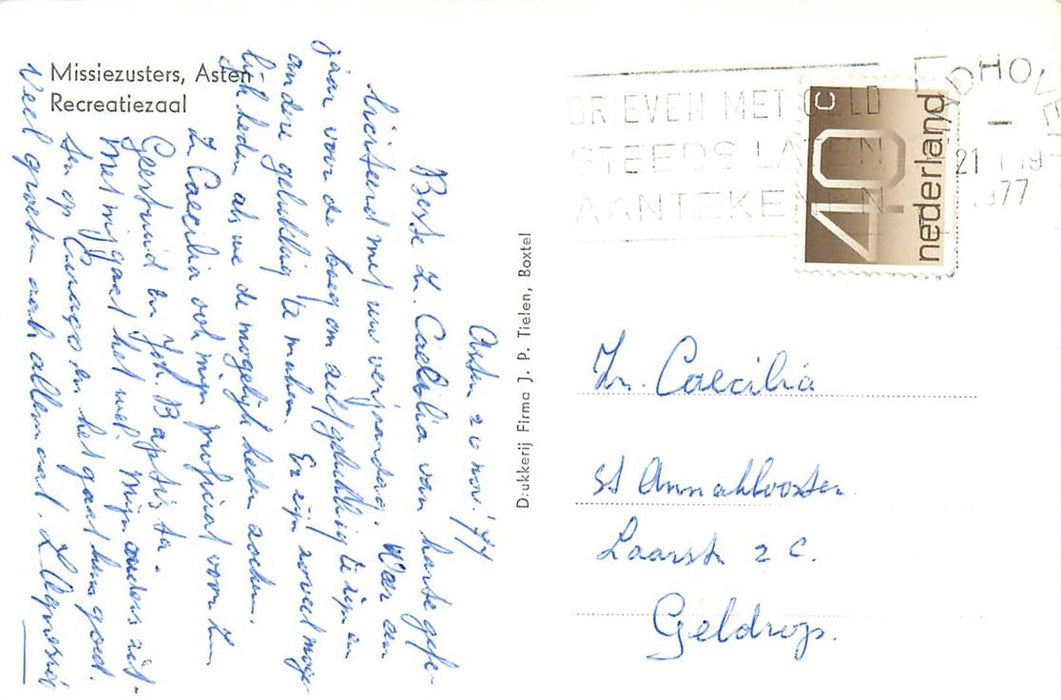 Missiezusters, Asten
Recreatiezaal
Asten 20 nov. '77
Beste Zr. Caecilia van harte gefe-
liciteerd met uw verjaardag. Weer een
jaar voor de boeg om zelf gelukkig te zijn en
andere gelukkig te maken. Er zijn zoveel moge
lijkheden als we de mogelijkheden zoeken.
Zr Caecilia ook mijn proficiat voor Zr
Geertruid en Joh. Baptista.
Met mij gaat het wel. Mijn ouders zit-
ten op Curaçao en het gaat hun goed.
Veel groeten aan allemaal. Z Agnesia
Drukkerij Firma J. P. Tielen, Boxtel
BRIEVEN MET GELD
STEEDS LATEN
AANTEKENEN
EINDHOVEN
21
1977
40 c
nederland
Zr. Caecilia
St Annaklooster
Laarstr 2 C.
Geldrop.